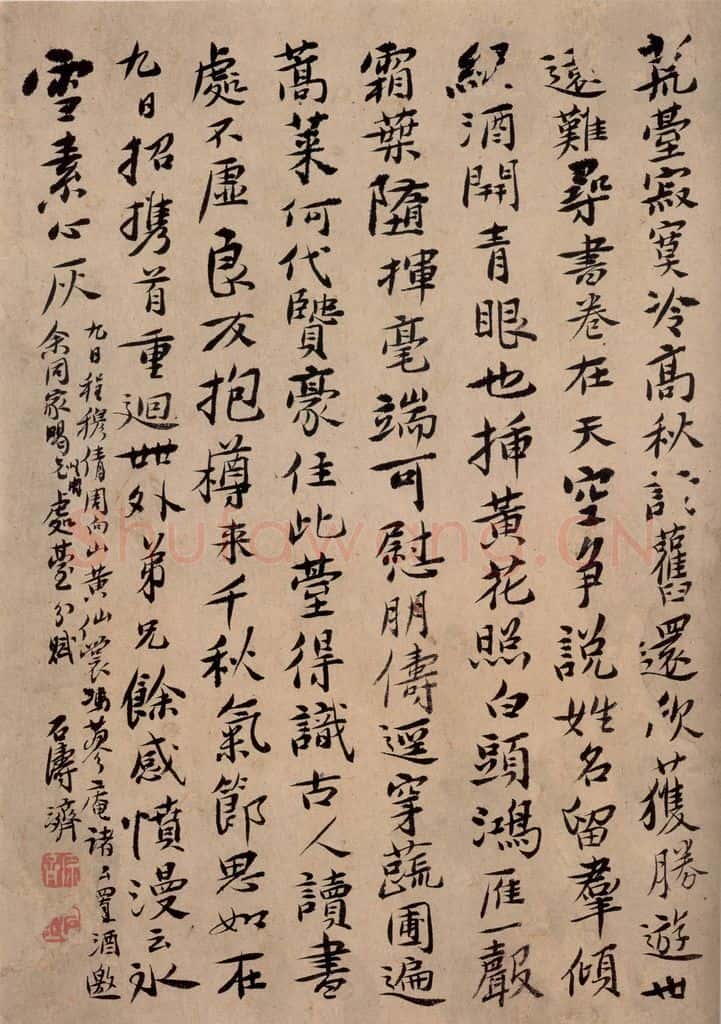 荒臺寂寞冷高秋訪舊還欣獲勝遊世
遠難尋書卷在天空爭說姓名留羣傾
綠酒開青眼也插黃花照白頭鴻雁一聲
霜葉墮揮毫端可慰朋儔逕穿蔬圃遍
蒿萊何代賢豪住此臺得識古人讀書
處不虛良友抱樽來千秋氣節思如在
九日招攜首重迴世外弟兄餘感憤漫云永
雪素心灰
九日程穆倩周向山黃仙裳馮蓼庵諸公置酒邀
余同家喝兄處臺分賦
石濤濟
Shufawang.CN